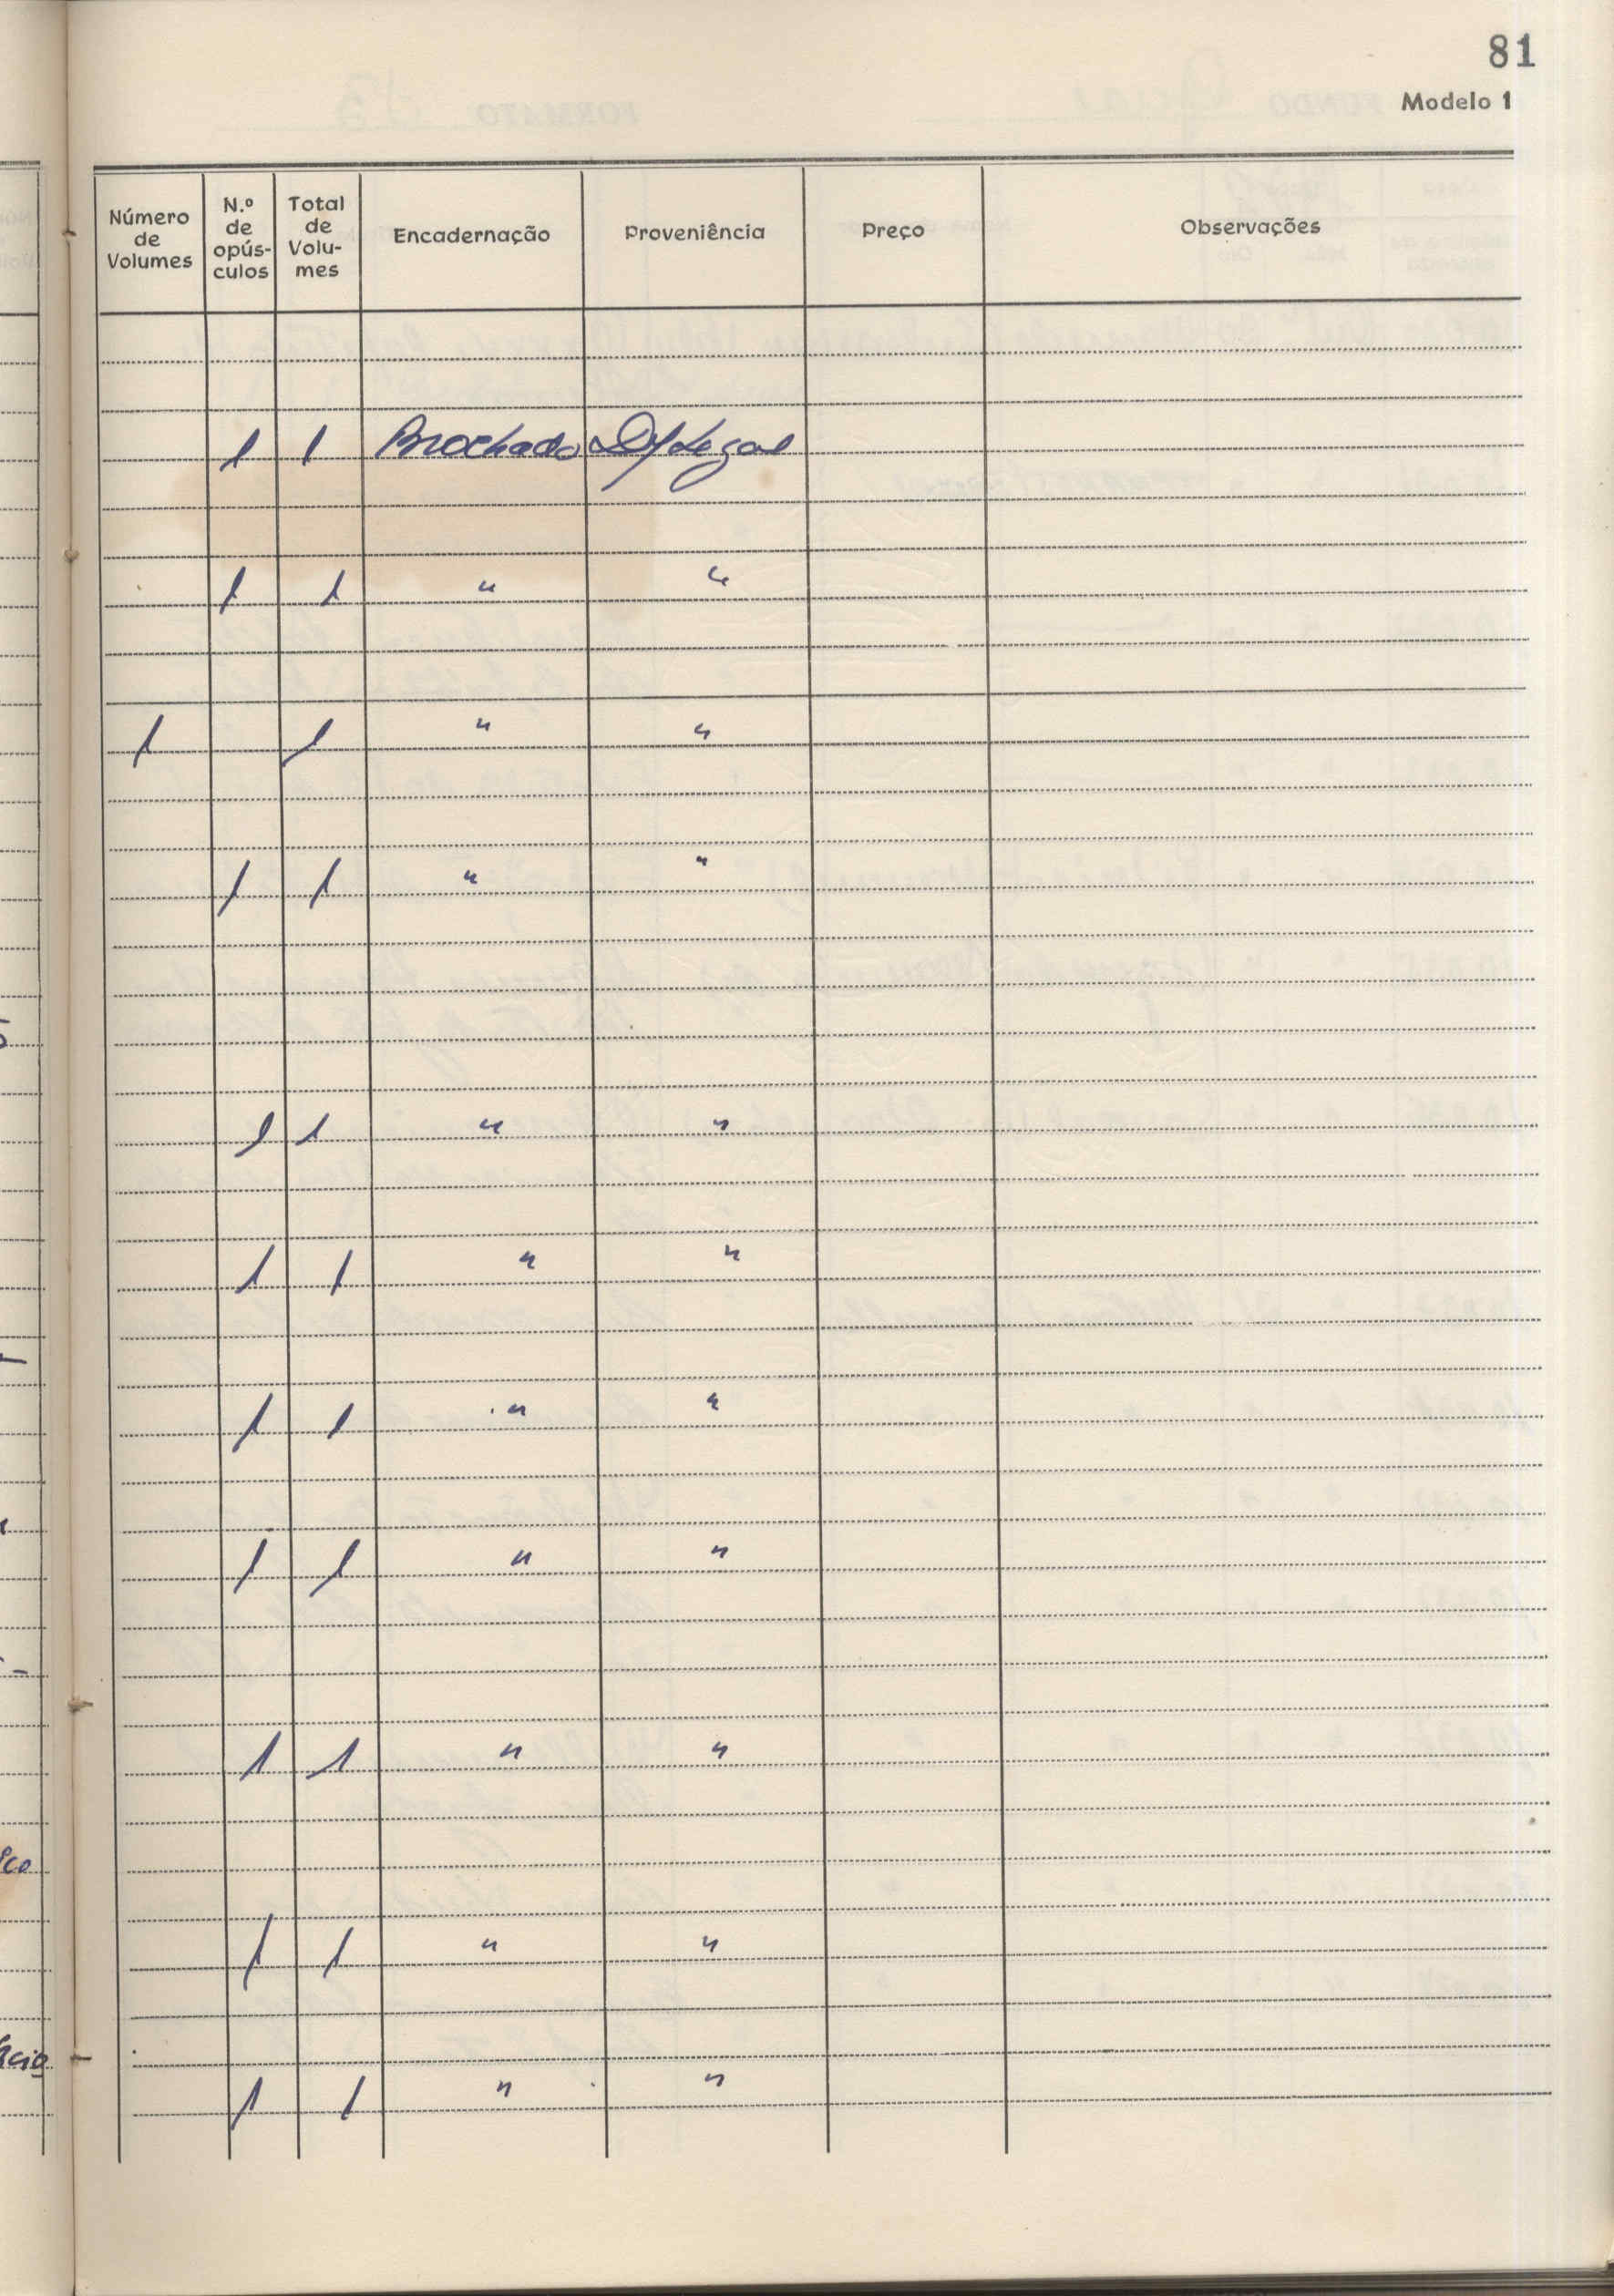 81
Modelo 1
Número de Volumes N.º de opús- culos Total de Volu- mes Encadernação Proveniência Preço Observações
1 1 Brochado Dep Legal
1 1 " "
1 1 " "
1 1 " "
1 1 " "
1 1 " "
1 1 " "
1 1 " "
1 1 " "
1 1 " "
1 1 " "